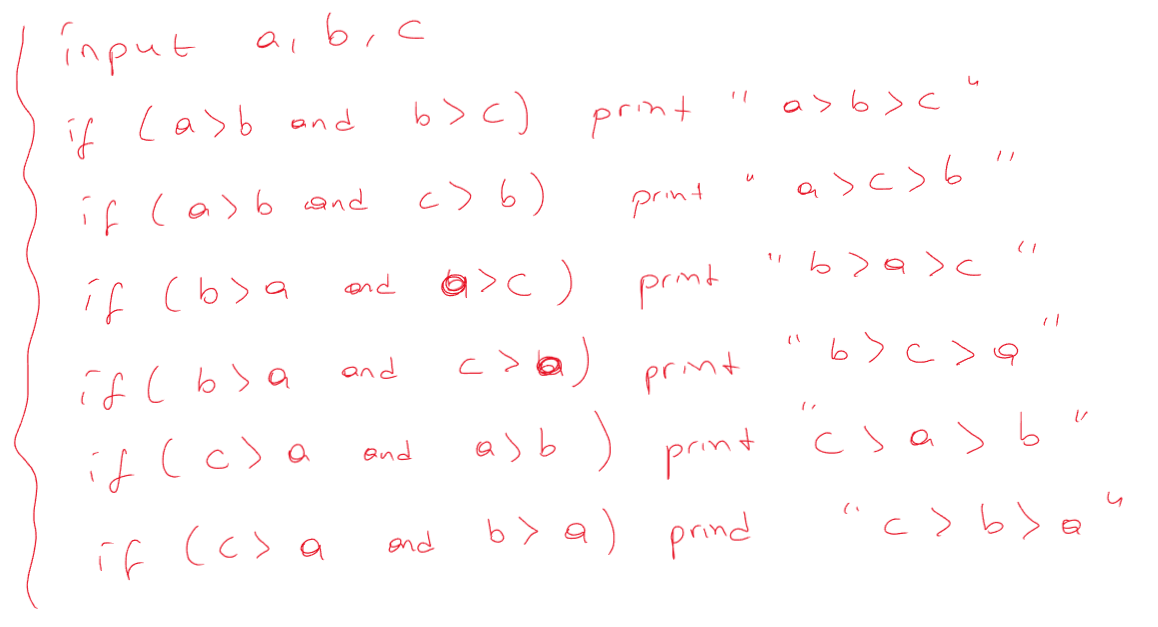 input a, b, c
if (a>b and b>c) print " a>b>c "
if (a>b and c>b) print " a>c>b "
if (b>a and a>c) print " b>a>c "
if( b>a and c>a) print " b>c>a "
if (c>a and a>b ) print "c>a>b "
if (c>a and b>a) prind " c>b>a "